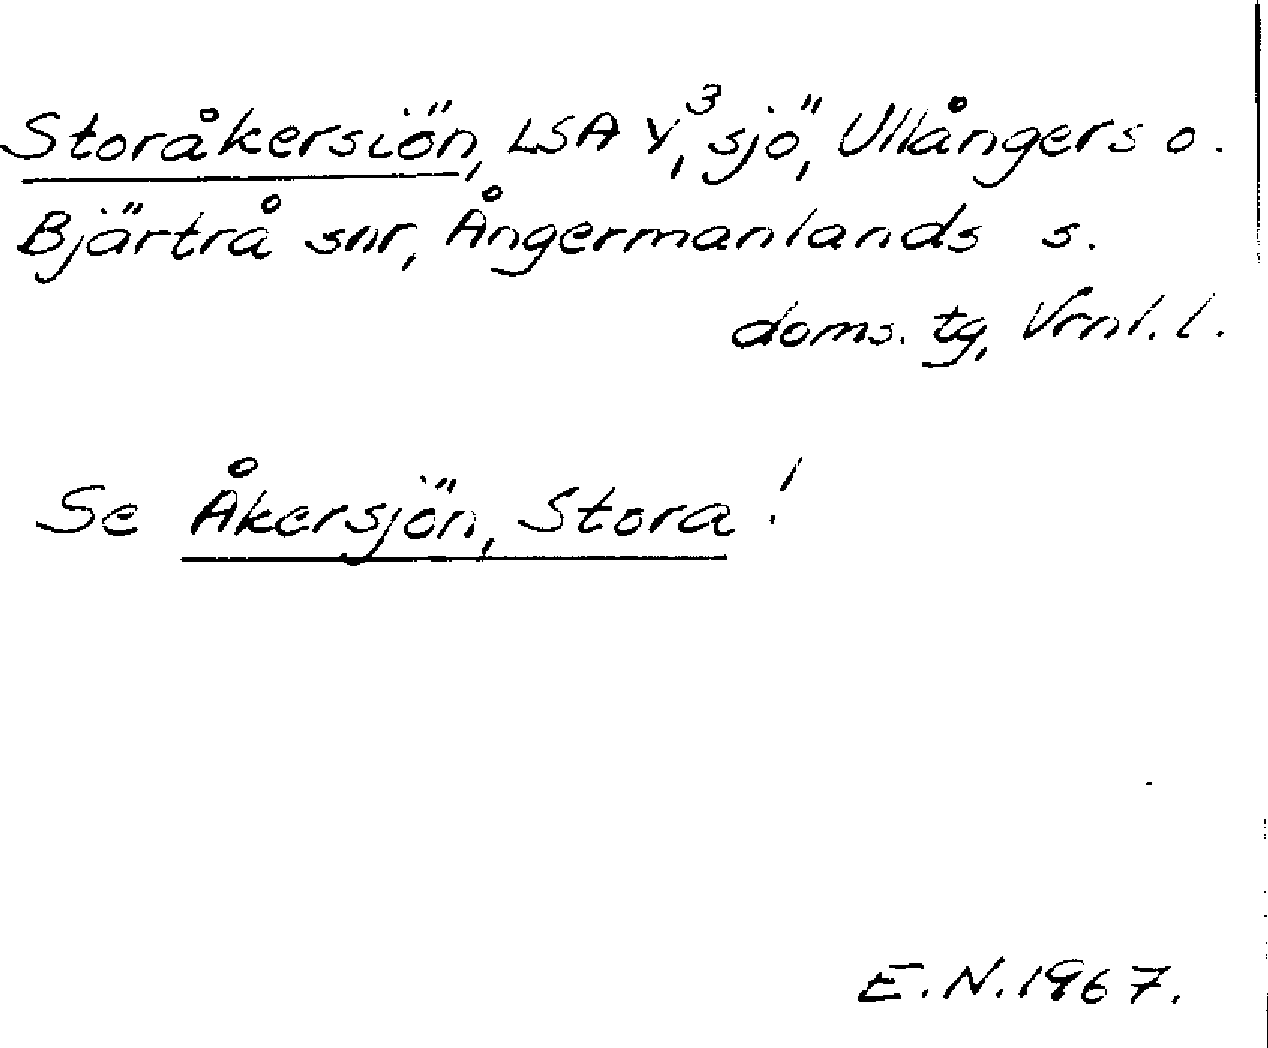 Storåkersiön, LSA Y³, sjö, Ullångers o.
Bjärtrå snr, Ångermanlands s.
doms. tg, Vrnl. l.
Se Åkersjön, Stora!
E.N. 1967.